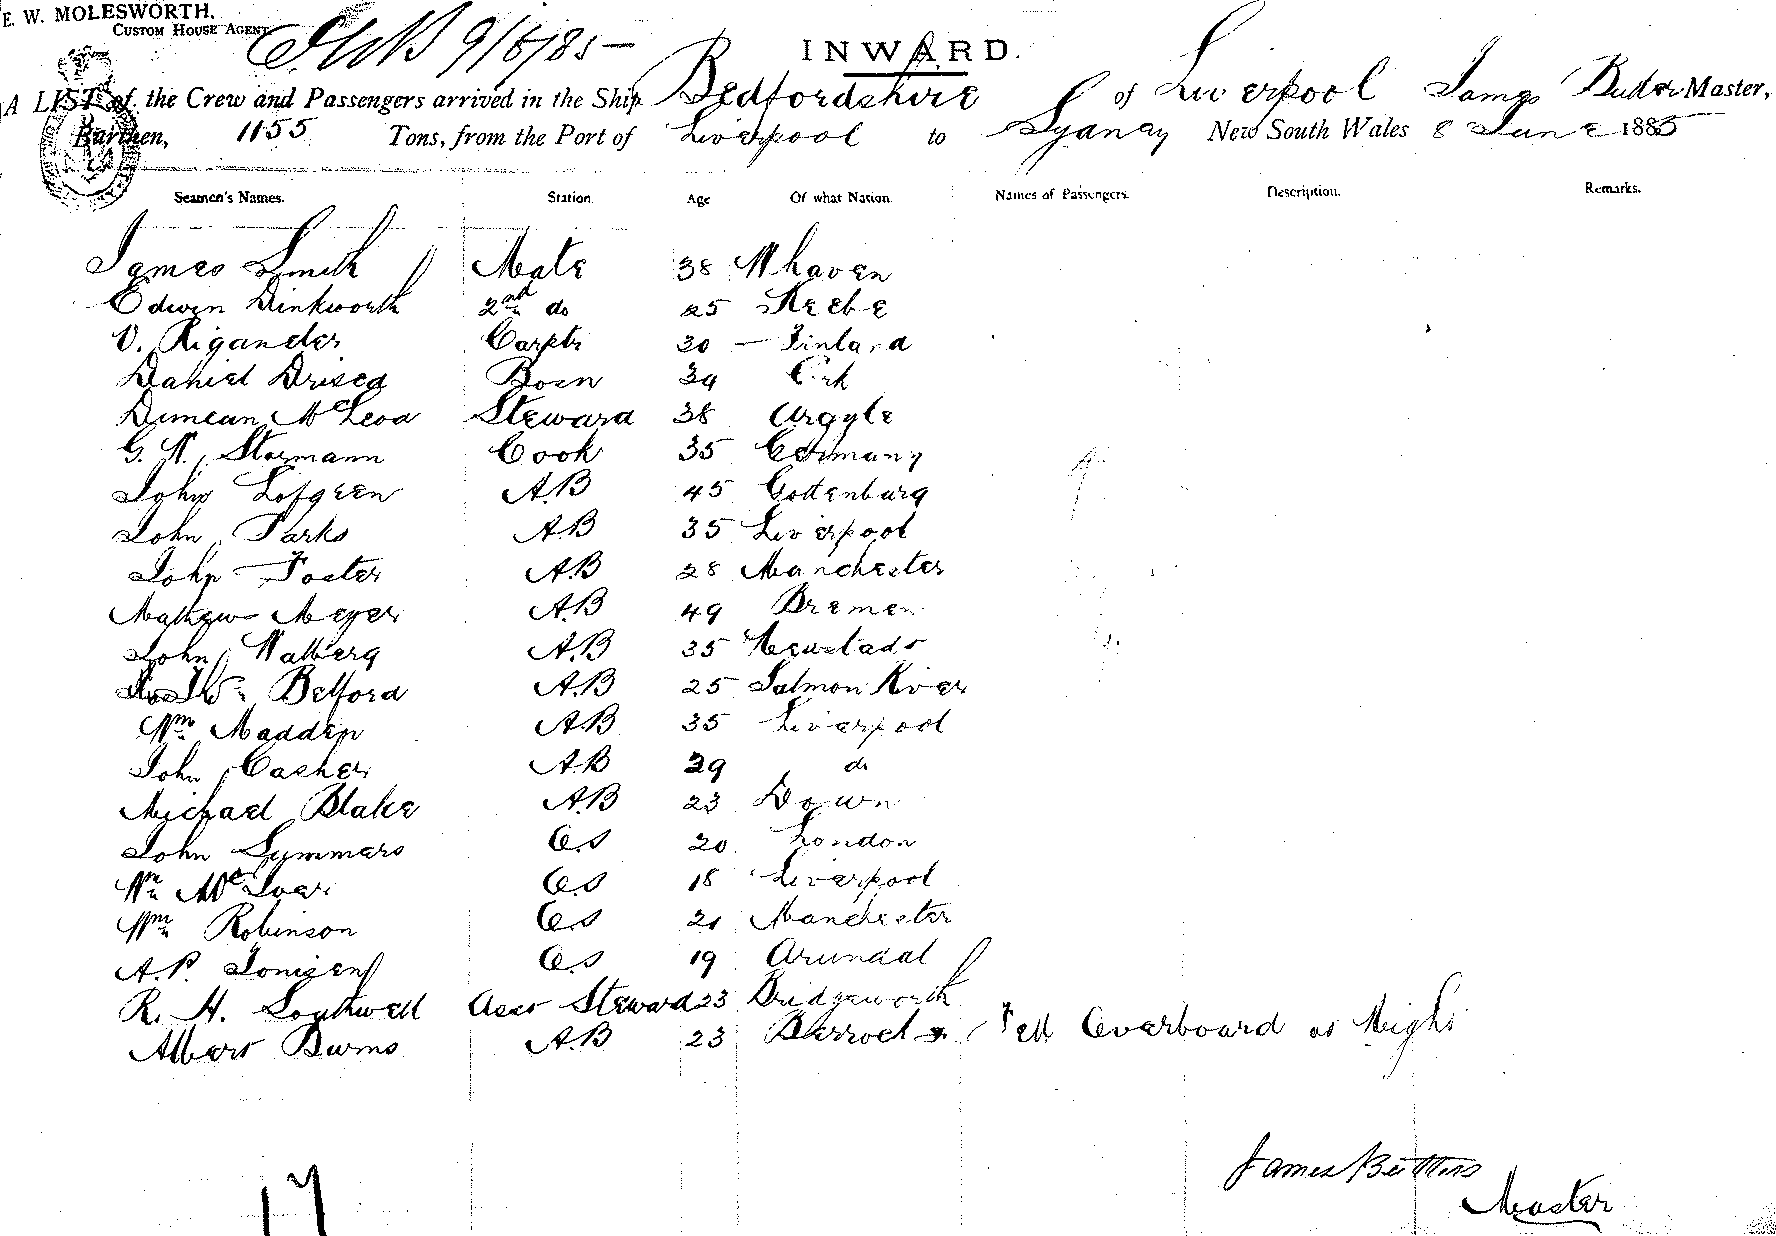 E. W. MOLESWORTH,
CUSTOM HOUSE AGENT
9/6/85
INWARD.
A LIST of the Crew and Passengers arrived in the Ship Bedfordshire of Liverpool James Master,
Burthen, 1155 Tons, from the Port of Liverpool to Sydney New South Wales 8 June 1885
Seamen's Names. Station. Age Of what Nation. Names of Passengers. Description. Remarks.
James Smith Mate 38 Whaven
Edwin Dinkworth 2nd do 25
O. Rigander Carptr 30 Finland
Daniel Bosn 39 Cork
Duncan McLeod Steward 38 Argyle
G. W. Stormann Cook 35 Germany
John Lofgren A.B 45 Gottenburg
John Parks A.B 35 Liverpool
John Foster A.B 28 Manchester
Mathew Meyer A.B 49 Bremen
John Walberg A.B 35
Belford A.B 25 Salmon River
Wm Madden A.B 35 Liverpool
John Casher A.B 29 do
Michael Blake A.B 23 Down
John Summers O.S 20 London
Wm O.S 18 Liverpool
Wm Robinson O.S 21 Manchester
A.P. O.S 19 Arundal
R. H. Southwell Asst Steward 23 Bridgeworth
Albert Burns A.B 23 Fell Overboard at Night
James Butters
Master
17